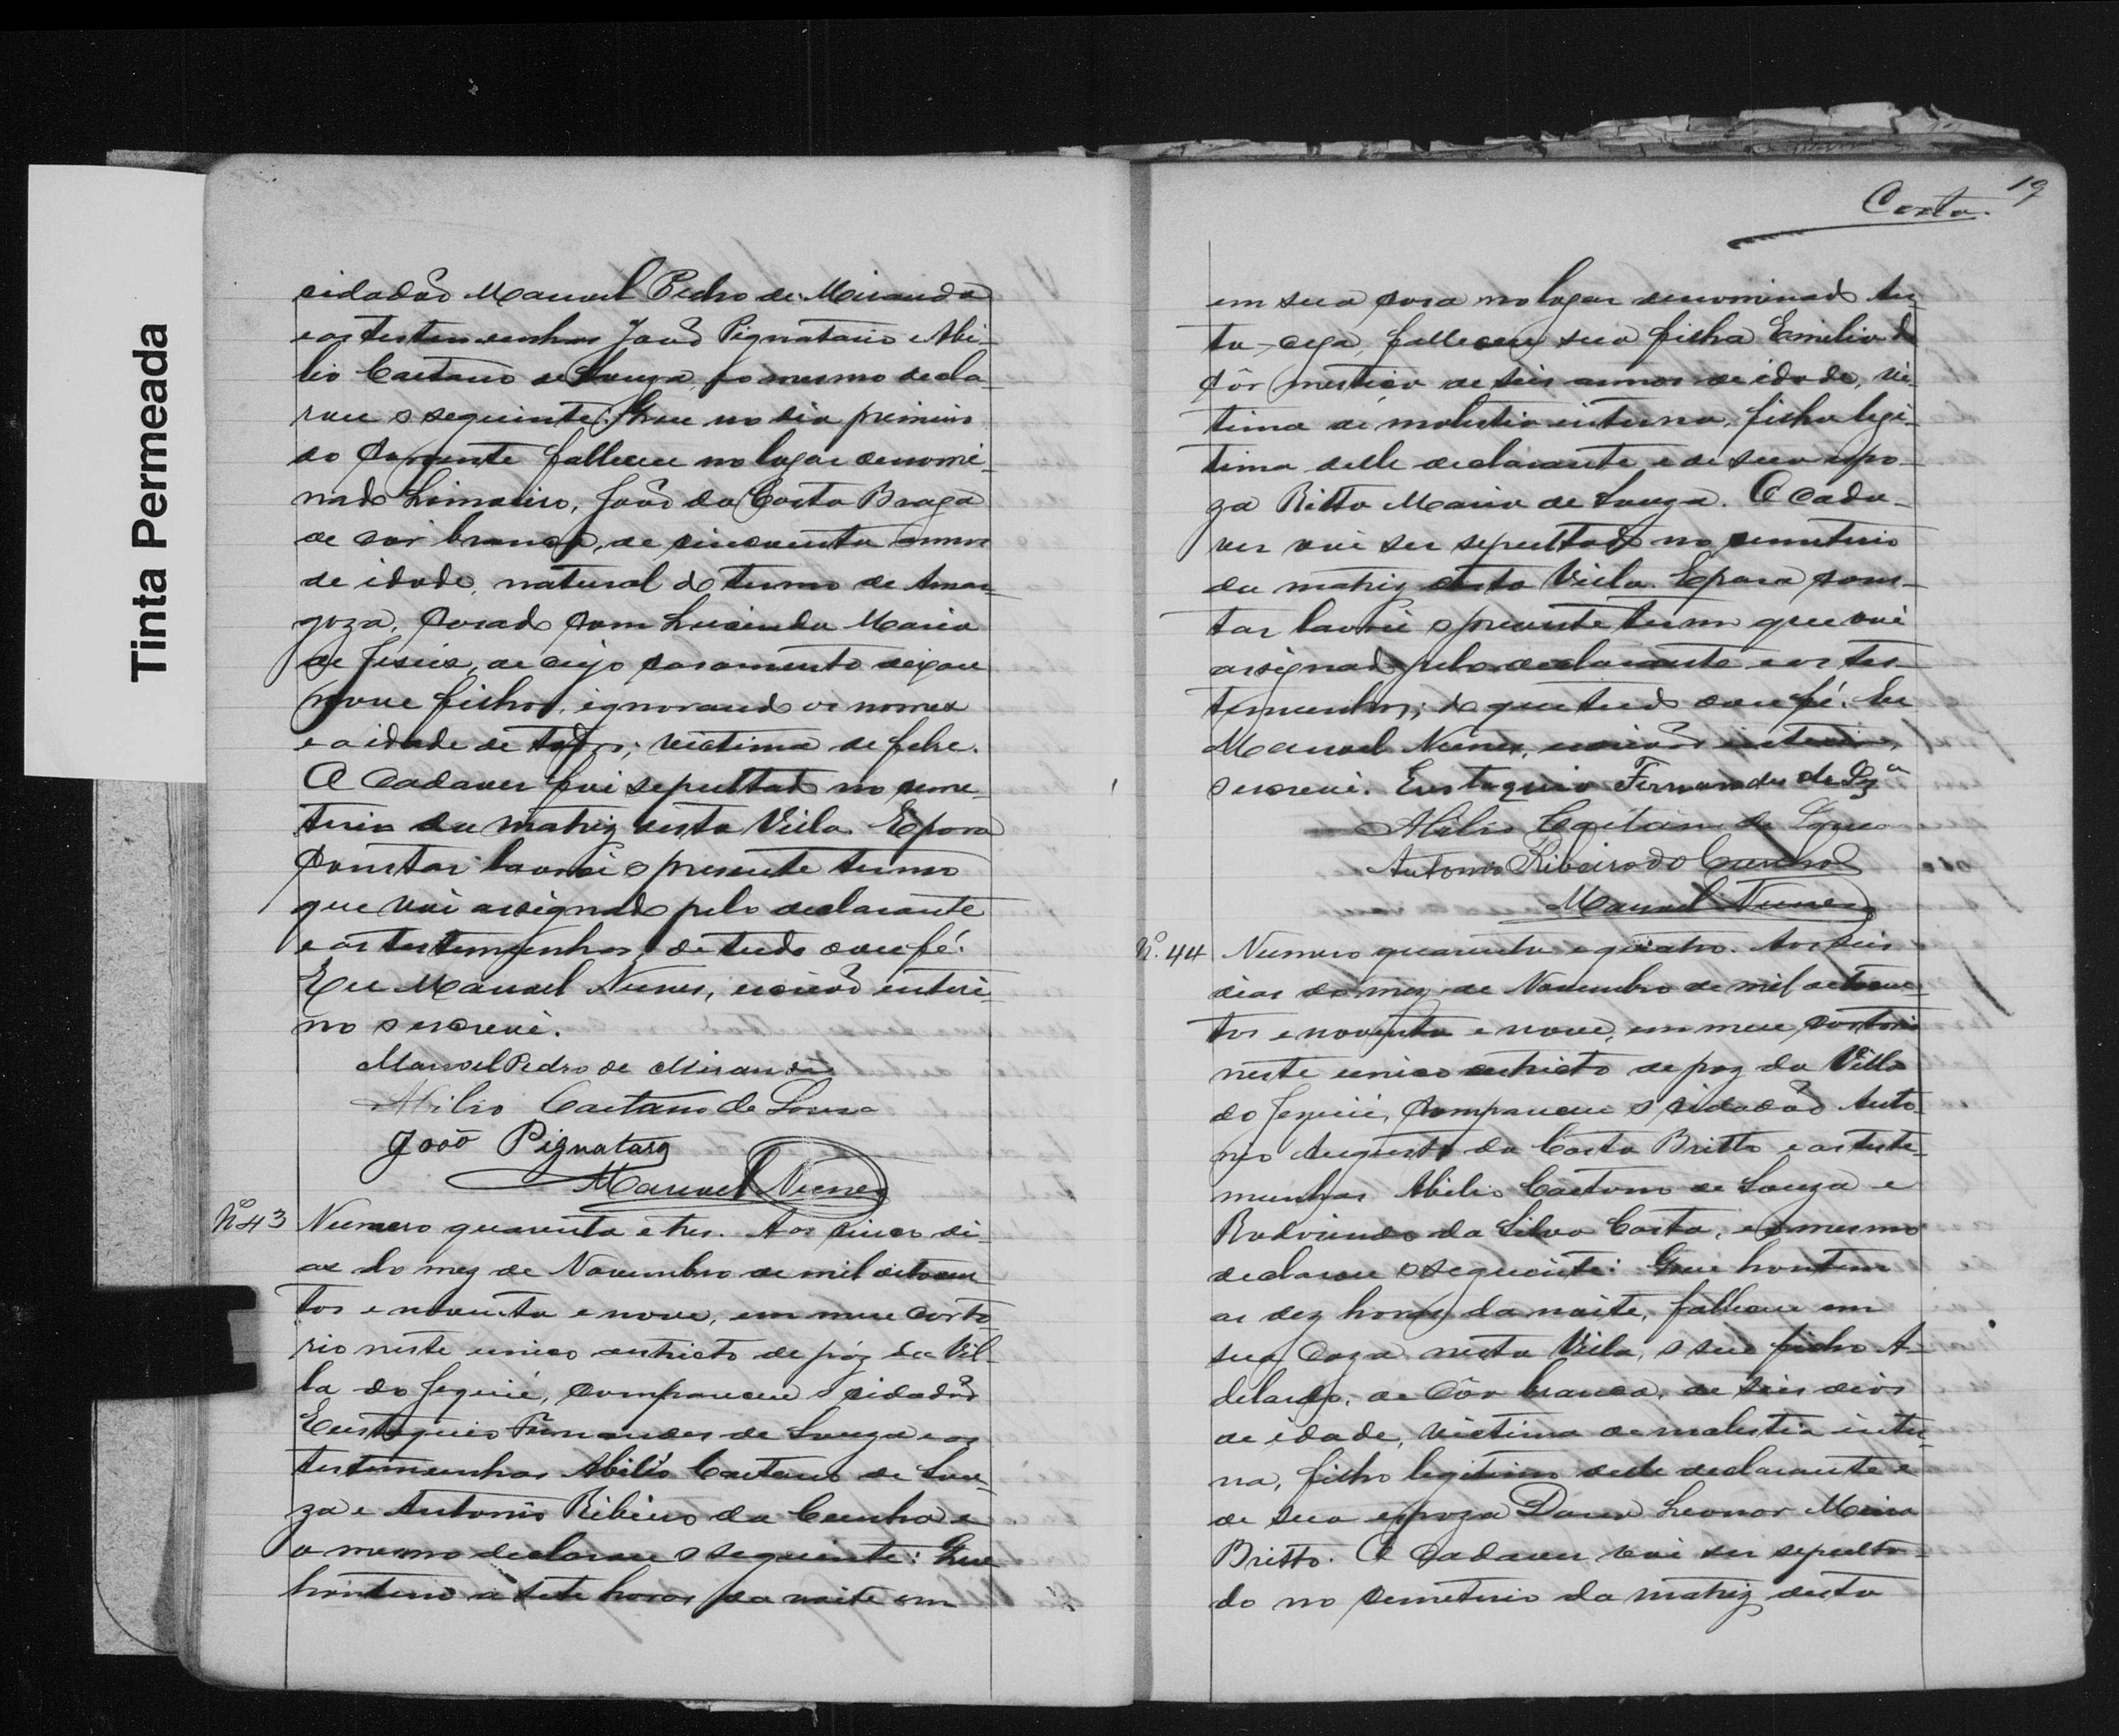 Tinta Permeada
cidadão Manoel Pedro de Miranda
e as testemunhas João Pignatario e Abi-
lio Caetano de Souza, e o mesmo decla-
rou o seguinte: Que no dia primeiro
do corrente falleceu no lugar denomi-
nado Limoeiro, João da Costa Braga
de cor branca, de cincoenta annos
de idade, natural do termo de Amar-
goza, casado com Lucinda Maria
de Jesus, de cujo casamento deixou
nove filhos, ignorando os nomes
e a idade de todos; victima de febre.
O Cadaver foi sepultado no ceme-
terio da matriz desta Villa. E para
constar lavrei o presente termo
que vai assignado pelo declarante
e as testemunhas, de tudo dou fé.
Eu Manoel Nunes, escrivão interi
no o escrevi.
Manoel Pedro de Miranda
Abilio Caetano de Souza
João Pignataro
Manoel Nunes
Nº43 Numero quarenta e tres. Aos cinco di-
as do mez de Novembro de mil oitocen-
tos e noventa e nove, em meu carto-
rio neste unico districto de páz da Vil-
la do Jequié, compareceu o cidadão
Eustaquio Fernandes de Souza e as
testemunhas Abilio Caetano de Sou-
za e Antonio Ribeiro da Cunha e
o mesmo declarou o seguinte: Que
hontem as sete horas da noite em
19
Costa.
em sua casa no lugar denominado
falleceu sua filha Emilia de
côr mestiça de seis annos de idade, vic-
tima de molestia interna, filha legi-
tima delle declarante e de sua espo-
za Ritta Maria de Souza. O Cada-
ver vai ser sepultado no cemeterio
da matriz desta Villa. E para cons-
tar lavrei o presente termo que vai
assignado pelo declarante e as tes-
temunhas; do que tudo dou fé. Eu
Manoel Nunes, escrivão interino,
o escrevi. Eustaquio Fernandes de Sza
Abilio Caetano de Souza
Antonio Ribeiro da Cunha
Manoel Nunes
Nº. 44 Numero quarenta e quatro. Aos seis
dias do mez de Novembro de mil oitocen-
tos e noventa e nove, em meu cartorio
neste unico districto de paz da Villa
do Jequié, compareceu o cidadão Anto-
nio Augusto da Costa Britto e as teste-
munhas Abilio Caetano de Souza e
da Silva Costa, e o mesmo
declarou o seguinte: Que hontem
as dez horas da noite, falleceu em
sua Caza nesta Villa, o seu filho A-
delardo, de Côr branca, de seis dias
de idade, victima de molestia inter-
na, filho legitimo delle declarante e
de sua espoza Dona Leonor Meira
Britto. O Cadaver vai ser sepulta-
do no cemeterio da matriz desta